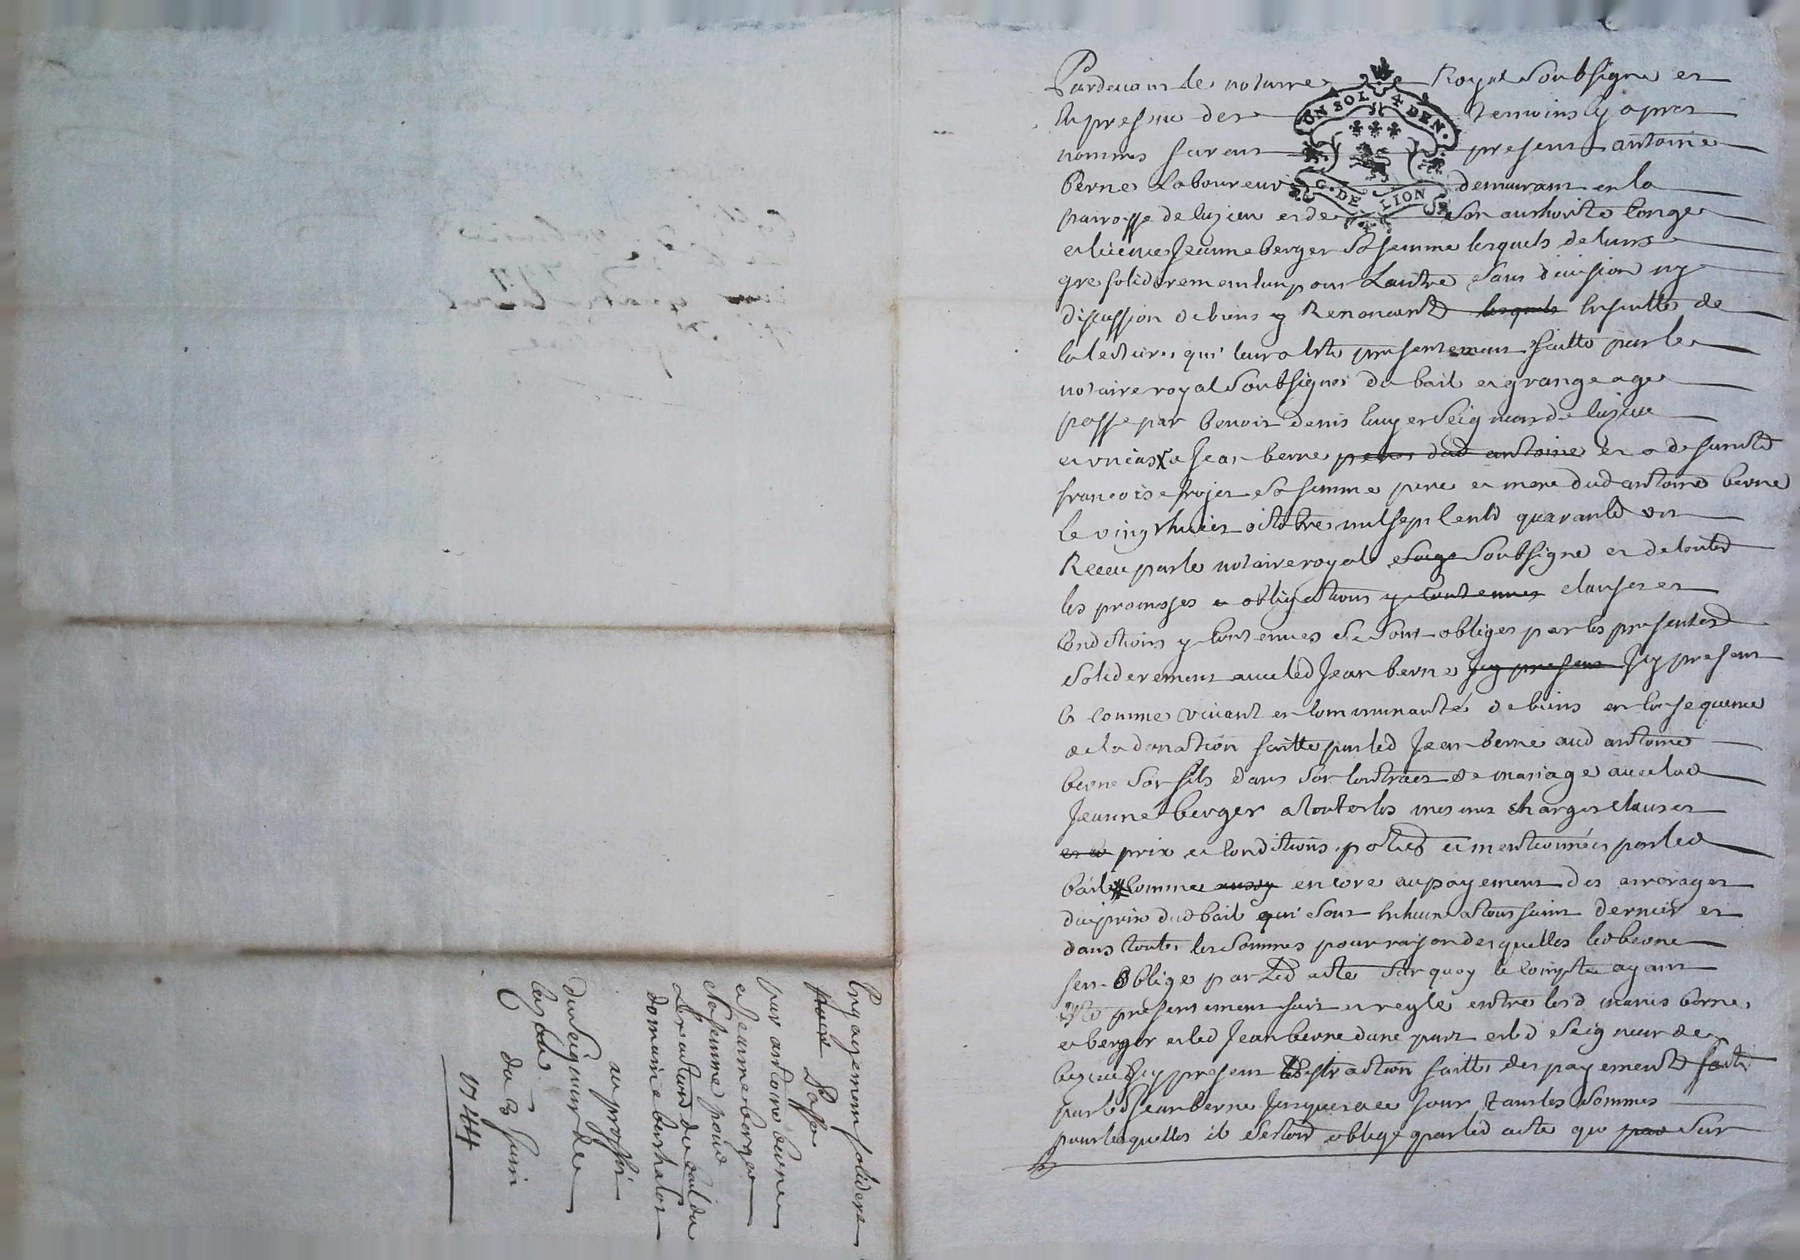 Pardevant le notaire Royal Soubsigné et
En presence des temoins Cy apres
nommes furent present antoine
Berne Laboureur demeurant en la
paroisse de luzieu et de Son authorité Conge
et licence Jeanne berger Sa femme lesquels de leurs
gré soliderement lun pour Lautre Sans division ny
discussion de biens y Renoncent lesquels Ensuitte de
la lecture qui leur a Esté presentement faitte par le
notaire royal Soubsigné du bail et grangeage
passé par benoit denis Seigneur de luzieu
a Jean berne pere dud antoine et a defuncte
francoise sa femme pere et mere dud antoine berne
le vingt huict octobre mil sept Cents quarante un
Receu par le notaire royal Soubsigné et de toutes
les promesses et obligations y Contenues clauses et
Conditions y Contenues Se Sont obliges par les presentes
Soliderement avec led Jean berne Icy present Icy present
Et comme vivant en Communauté de biens en Consequence
de la donation faitte par led Jean berne aud antoine
berne Son fils dans Son Contract de mariage avec lad
Jeanne berger a toutes les mesmes charges clauses
prix et Conditions portés et mentionnées par led
bail Comme aussy encore au payement des arrerages
du prix dud bail qui Sont Echeus a toussaint dernier et
dans toutes les Sommes pour raison desquelles led berne
Sen Oblige par Led acte Sur quoy le Compte ayant
Esté presentement fait et reglé entre lesd maries berne
et berger et led Jean berne dune part et led Seigneur de
luzieu Icy present distraction faitte des payements faits
par led Jean berne Jusques a ce Jour tant les Sommes
pour lesquelles il Sestoit obligé par led acte que par Sur
UN SOL 4 DEN.
G. DE LION
Engagement solidere
passé
par antoine berne
et Jeanne berger
Sa femme pour
Lexecution du bail du
domaine
au proffit
du Seigneur de
luzieu
du 3 Juin
1744